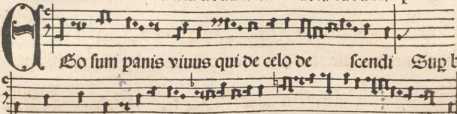 Ego sum panis viuus qui de celo de scendi Sup b